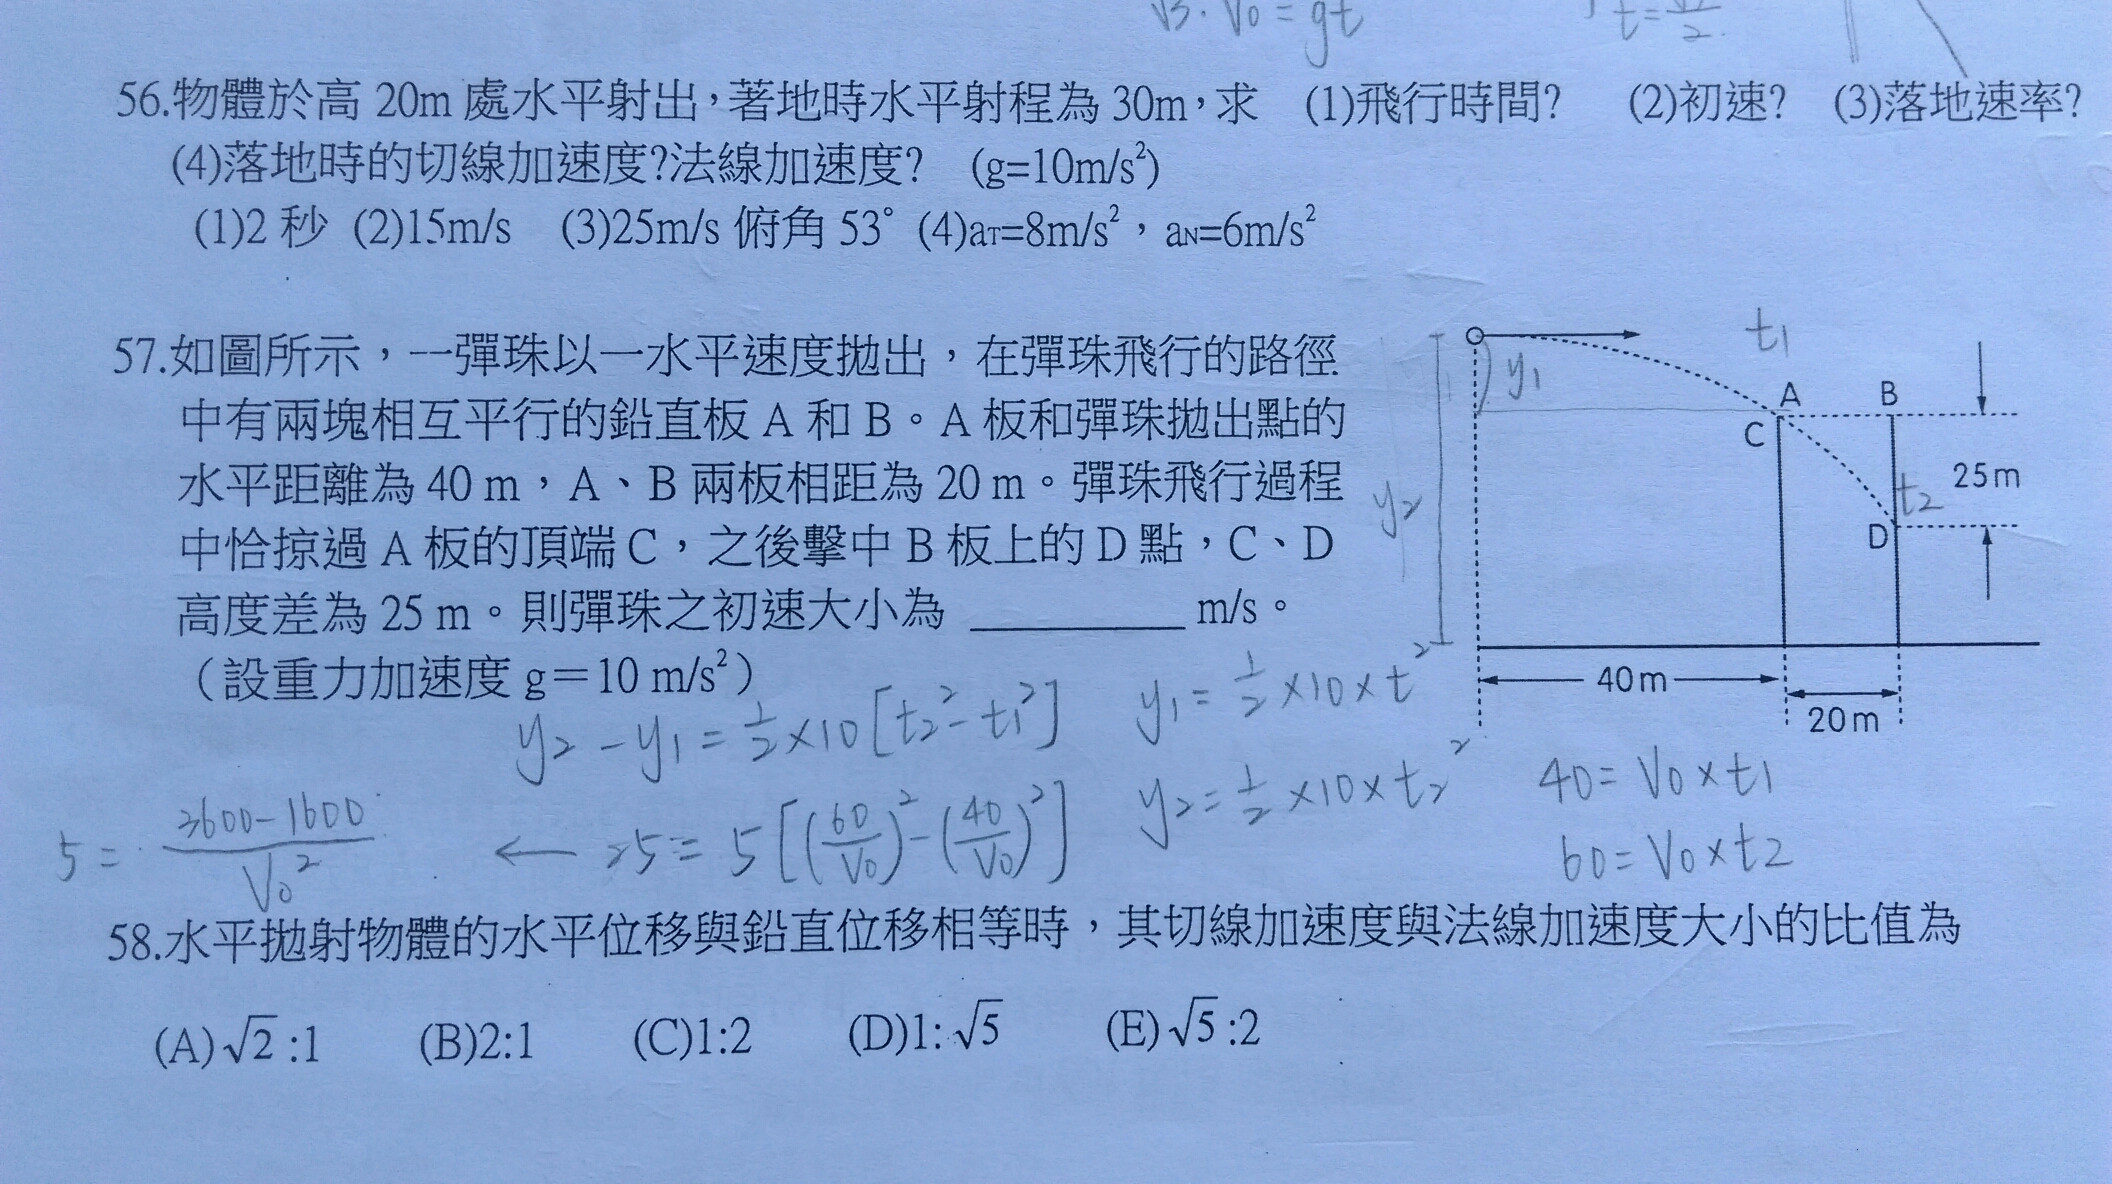 √3·V₀=gt
t=
56.物體於高 20m 處水平射出，著地時水平射程為 30m，求 (1)飛行時間? (2)初速? (3)落地速率?
(4)落地時的切線加速度?法線加速度? (g=10m/s²)
(1)2 秒 (2)15m/s (3)25m/s 俯角 53° (4)aT=8m/s²，aN=6m/s²
57.如圖所示，一彈珠以一水平速度拋出，在彈珠飛行的路徑
中有兩塊相互平行的鉛直板 A 和 B。A 板和彈珠拋出點的
水平距離為 40 m，A、B 兩板相距為 20 m。彈珠飛行過程
中恰掠過 A 板的頂端 C，之後擊中 B 板上的 D 點，C、D
高度差為 25 m。則彈珠之初速大小為 ________ m/s。
（設重力加速度 g＝10 m/s²）
t₁
y₁
A B
C
y₂
25m
t₂
D
40m
20m
y₂-y₁=½×10[t₂²-t₁²]
y₁=½×10×t²
y₂=½×10×t₂²
40=V₀×t₁
60=V₀×t2
5=(3600-1600)/V₀² ← 25=5[(60/V₀)²-(40/V₀)²]
58.水平拋射物體的水平位移與鉛直位移相等時，其切線加速度與法線加速度大小的比值為
(A)√2:1 (B)2:1 (C)1:2 (D)1:√5 (E)√5:2